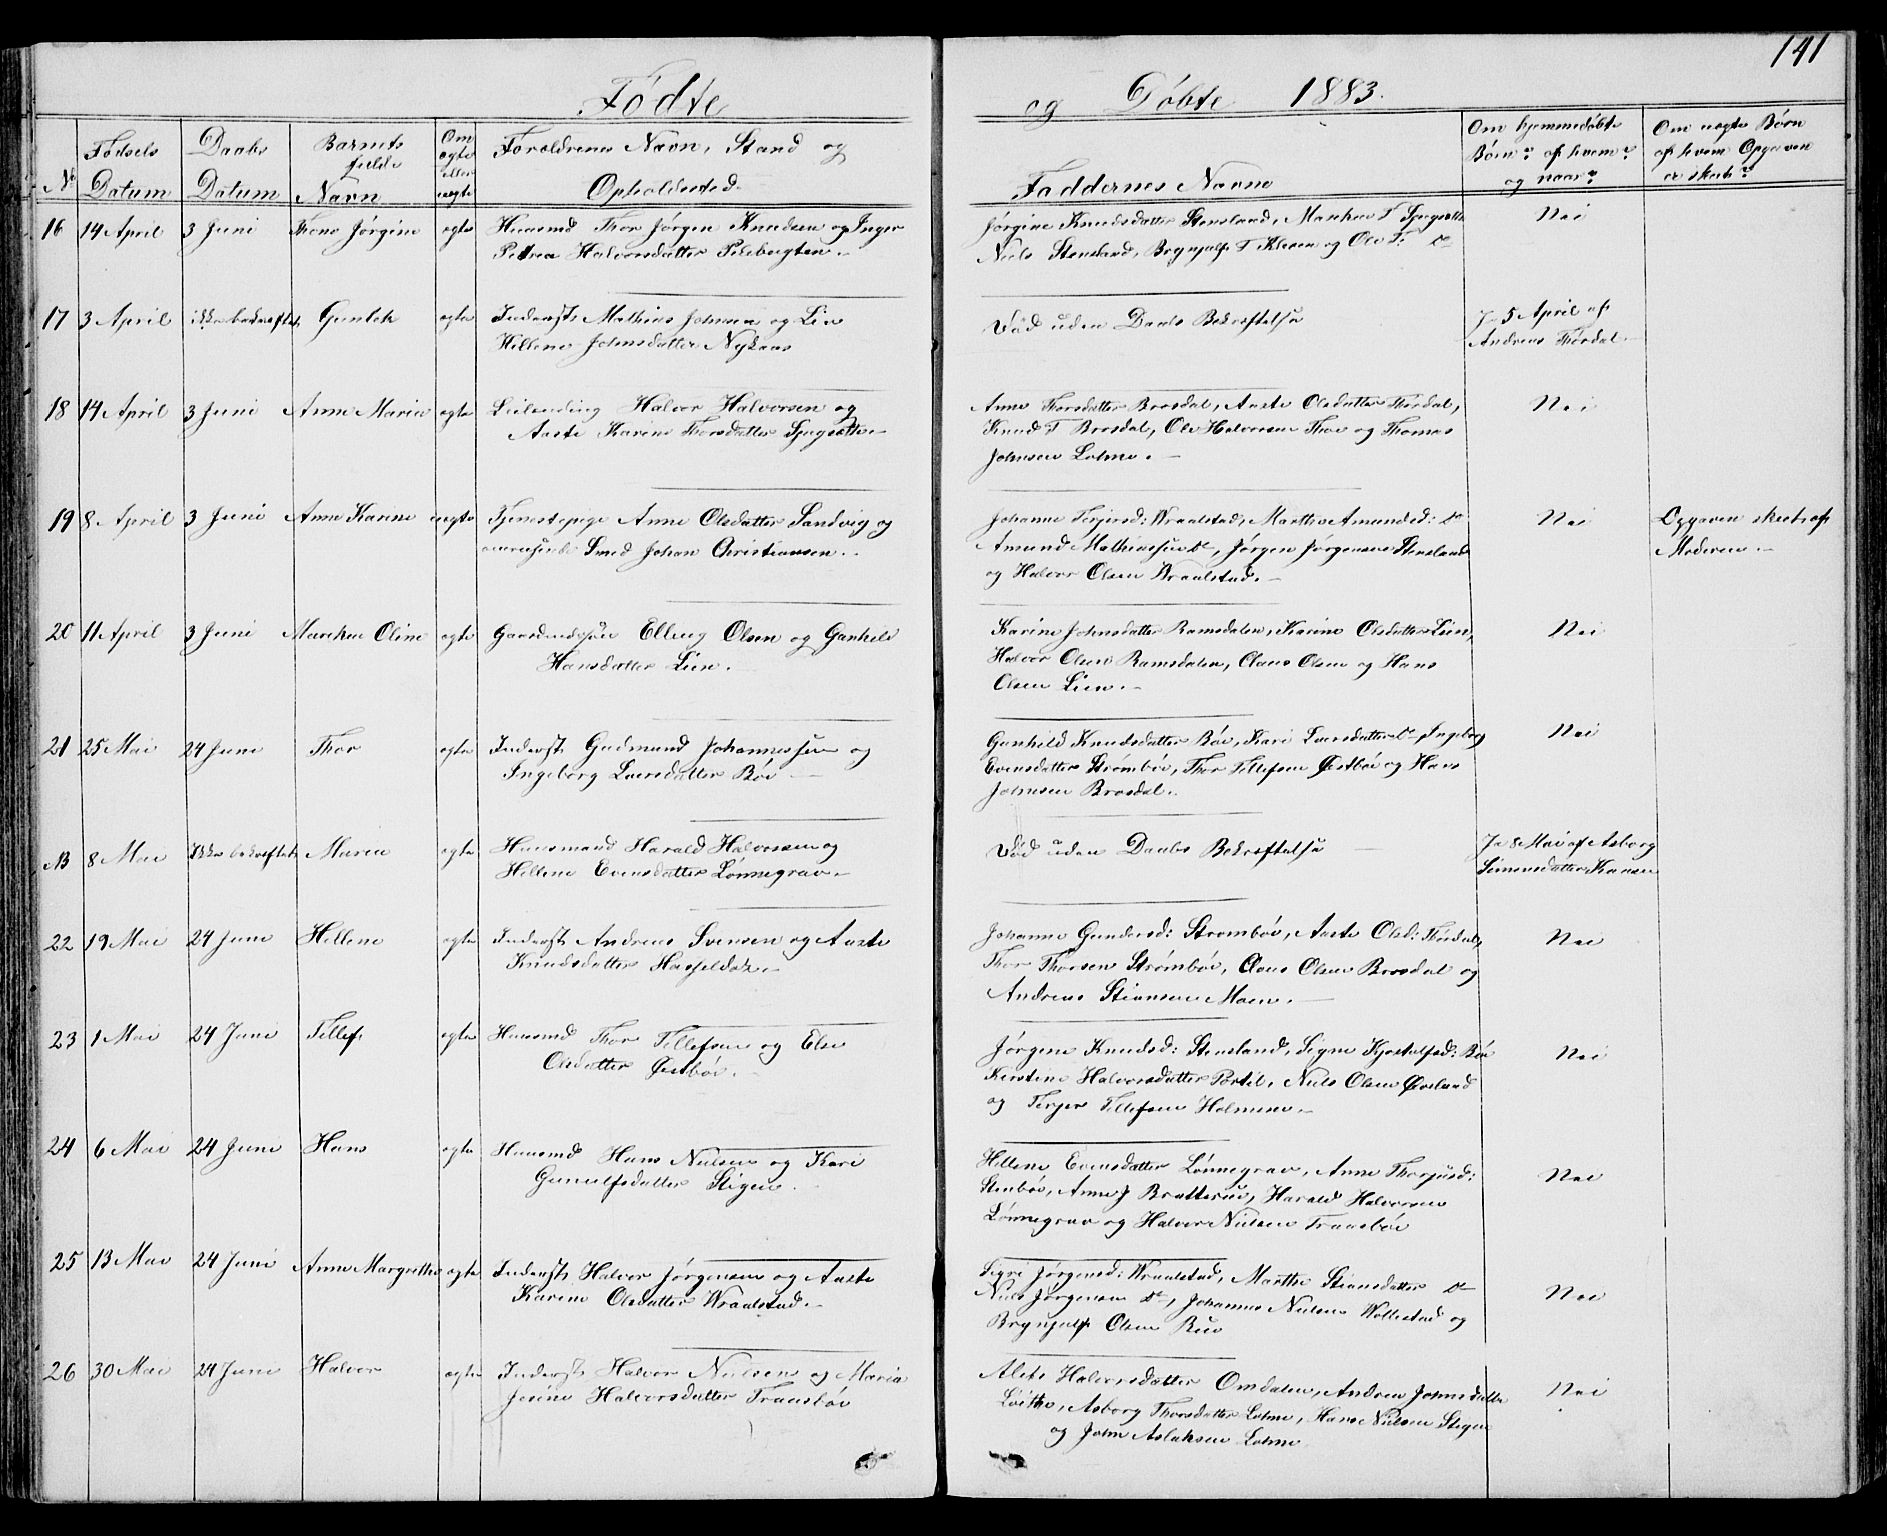 141
Fødte og Døbte 1883.
No
Fødsels Datum
Daabs Datum
Barnets fulde Navn
Om ægte eller uægte
Forældrenes Navn, Stand og Opholdssted.
Faddernes Navne
Om hjemmedøbte Børn? af hvem? og naar?
Om uægte Børn af hvem Opgaven er skeet?
16 14 April 3 Juni Jørgine ægte Huusmd Thor Jørgen Knudsen og Inger
Petrea Halvorsdatter
Jørgine Knudsdatter Stensland,
Niels Stensland, Brynjulf T. og Ole T. do
Nei
17 3 April ikke bekræftet Gunlek ægte Inderst Mathias Johnsen og Lise
Hellene Johnsdatter Nykaas
Død uden Daabs Bekræftelse
Ja 5 April af
Andreas Tørdal.
18 14 April 3 Juni Anne Maria ægte Leilending Halvor Halvorsen og
Aaste Karine Thorsdatter
Anne Thorsdatter Brosdal, Aaste Olsdatter Tørdal,
Knud T Brosdal, Ole Halvorsen Thoe og Thomas
Johnsen Lohne. -
Nei
19 8 April 3 Juni Anne Karine uægte Tjenestepige Anne Olsdatter Sandvig og
omreisende Smed Johan Christiansen. -
Johanne Terjersd: Wraalstad, Marthe Amundsd: do
Amund Mathiassen do, Jørgen Jørgensen Stensland
og Halvor Olsen Wraalstad. -
Nei
Opgaven skeet af
Moderen. -
20 11 April 3 Juni Maren Oline ægte Gaardmandssøn Elling Olsen og Gunhild
Hansdatter Lien. -
Karine Johnsdatter Ramsdalen, Karine Olsdatter Lien,
Halvor Olsen Ramsdalen, Claus Olsen og Hans
Olsen Lien. -
Nei
21 25 Mai 24 Juni Thor ægte Inderst Gudmund Johannessen og
Ingeborg Lversdatter Bøe -
Gunhild Knudsdatter Bøe, Kari Lversdatter do Ingeborg
Evensdatter Strømbøe, Thor Tellefsen Østbøe og Hans
Johnsen Brosdal. -
Nei
NB 8 Mai Ikke bekræftet Maria ægte Huusmand Harald Halvorsen og
Hellene Evensdatter Lønnegrav. -
Død uden Daabs Bekræftelse
Ja 8 Mai af Asborg
Simonsdatter
22 19 Mai 24 Juni Hellene ægte Inderst Andreas Svensen og Aaste
Knudsdatter
Johanne Gundersd: Strømbøe, Aaste Olsd: Tørdal,
Thor Thorsen Strømbøe, Claus Olsen Brosdal og
Andreas Stiansen Moen. -
Nei
23 1 Mai 24 Juni Tellef ægte Huusmd Thor Tellefsen og Else
Olsdatter Østbøe. -
Jørgine Knudsd: Stensland, Signe Kjostolfsd: Bøe
Kerstine Halvorsdatter Portil, Niels Olsen Øvrland
og Terjer Tellefsen Holmene. -
Nei
24 6 Mai 24 Juni Hans ægte Huusmd Hans Nielsen og Kari
Gunulfsdatter Stigen. -
Hellene Evensdatter Lønnegrav, Anne Thorjusd:
Stenbøe, Anne J Bratterud, Harald Halvorsen
Lønnegrav og Halvor Nielsen Traasbøe
Nei
25 13 Mai 24 Juni Anne Margrethe ægte Inderst Halvor Jørgensen og Aaste
Karine Olsdatter Wraalstad. -
Sigri Jørgensd: Wraalstad, Marthe Stiansdatter do
Niels Jørgensen do, Johannes Nielsen Wollestad og
Brynjulf Olsen Rue
Nei
26 30 Mai 24 Juni Halvor ægte Inderst Halvor Nielsen og Maria
Jesine Halvorsdatter Traasbøe
Alete Halvorsdatter Omdalen, Andrea Johnsdatter
Løite, Asborg Thorsdatter Lohne, Hans Nielsen Stigen
og John Aslaksen Lohne
Nei